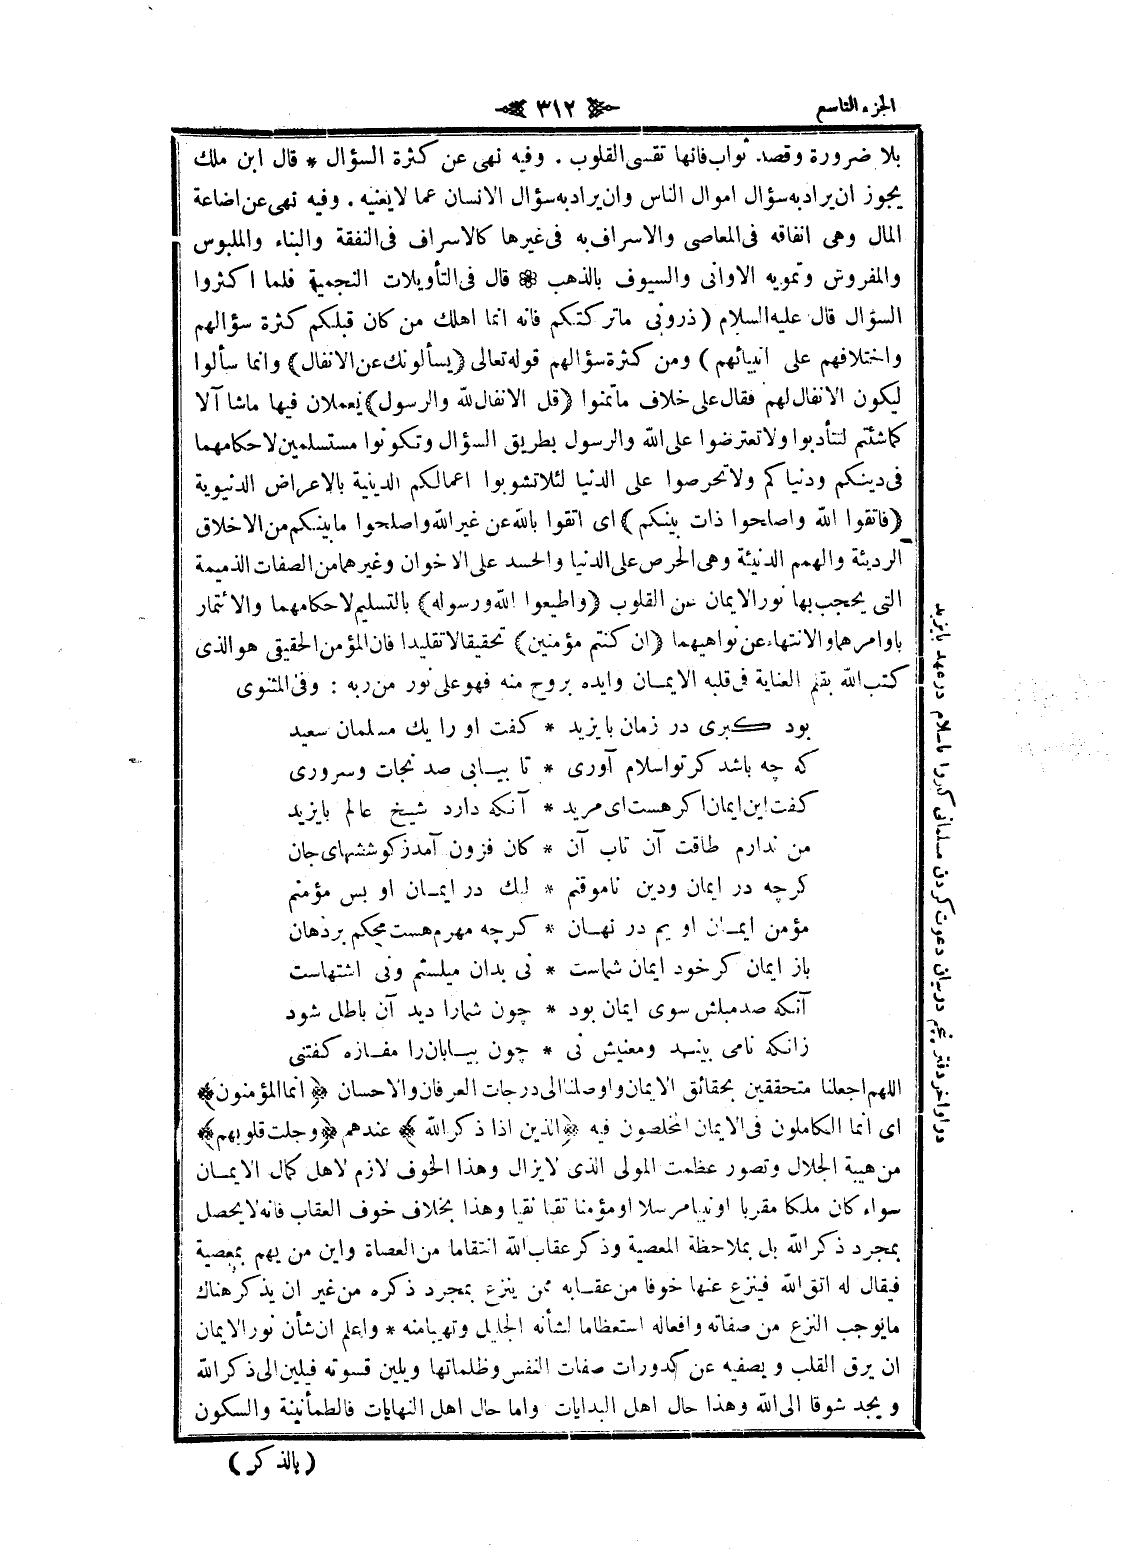 الجزء التاسع
٣١٢
بلا ضرورة وقصد. ثواب فانها تقسى القلوب . وفيه نهى عن كثرة السؤال * قال ابن ملك
يجوز ان يراد به سؤال اموال الناس وان يراد به سؤال الانسان عما لايعنيه . وفيه نهى عن اضاعة
المال وهى انفاقه فى المعاصى والاسراف به فى غيرها كالاسراف فى النفقة والبناء والملبوس
والمفروش وتمويه الاوانى والسيوف بالذهب ❁ قال فى التأويلات النجمية فلما اكثروا
السؤال قال عليه السلام (ذرونى ماتركتكم فانه انما اهلك من كان قبلكم كثرة سؤالهم
واختلافهم على انبيائهم) ومن كثرة سؤالهم قوله تعالى (يسألونك عن الانفال) وانما سألوا
ليكون الانفال لهم فقال على خلاف ماتمنوا (قل الانفال لله والرسول) يعملان فيها ماشاآ لا
كما شئتم لتتأدبوا ولاتعترضوا على الله والرسول بطريق السؤال وتكونوا مستسلمين لاحكامهما
فى دينكم ودنياكم ولاتحرصوا على الدنيا لئلا تشوبوا اعمالكم الدينية بالاعراض الدنيوية
(فاتقوا الله واصلحوا ذات بينكم) اى اتقوا بالله عن غير الله واصلحوا مابينكم من الاخلاق
الرديئة والهمم الدنيئة وهى الحرص على الدنيا والحسد على الاخوان وغيرهما من الصفات الذميمة
التى يحجب بها نور الايمان عن القلوب (واطيعوا الله ورسوله) بالتسليم لاحكامهما والائتمار
باوامرهما والانتهاء عن نواهيهما (ان كنتم مؤمنين) تحقيقا لاتقليدا فان المؤمن الحقيقى هو الذى
كتب الله بقلم العناية فى قلبه الايمان وايده بروح منه فهو على نور من ربه : وفى المثنوى
بود كبرى در زمان بايزيد * كفت او را يك مسلمان سعيد
كه چه باشد كر تو اسلام آورى * تا بيابى صد نجات وسرورى
كفت اين ايمان اكر هست اى مريد * آنكه دارد شيخ عالم بايزيد
من ندارم طاقت آن تاب آن * كان فزون آمد ز كوششهاى جان
كرچه در ايمان ودين ناموقنم * ليك در ايمان او بس مؤمنم
مؤمن ايمان او يم در نهان * كرچه مهرم هست محكم بر دهان
باز ايمان كر خود ايمان شماست * نى بدان ميلستم ونى اشتهاست
آنكه صد ميلش سوى ايمان بود * چون شمارا ديد آن باطل شود
زانكه نامى بيند ومعنيش نى * چون بيابان را مفازه كفتنى
اللهم اجعلنا متحققين بحقائق الايمان واوصلنا الى درجات العرفان والاحسان ﴿انما المؤمنون﴾
اى انما الكاملون فى الايمان المخلصون فيه ﴿الذين اذا ذكر الله﴾ عندهم ﴿وجلت قلوبهم﴾
من هيبة الجلال وتصور عظمت المولى الذى لايزال وهذا الخوف لازم لاهل كمال الايمان
سواء كان ملكا مقربا او نبيا مرسلا او مؤمنا تقيا نقيا وهذا بخلاف خوف العقاب فانه لايحصل
بمجرد ذكر الله بل بملاحظة المعصية وذكر عقاب الله انتقاما من العصاة واين من يهم بمعصية
فيقال له اتق الله فينزع عنها خوفا من عقابه ممن ينزع بمجرد ذكره من غير ان يذكر هناك
مايوجب النزع من صفاته وافعاله استعظاما لشأنه الجليل وتهيبا منه * واعلم ان شأن نور الايمان
ان يرق القلب و يصفيه عن كدورات صفات النفس وظلماتها ويلين قسوته فيلين الى ذكر الله
و يجد شوقا الى الله وهذا حال اهل البدايات واما حال اهل النهايات فالطمأنينة والسكون
(بالذكر)
در اواخر دفتر پنجم در بيان دعوت كردن مسلمانى كبر را باسلام در عهد بايزيد